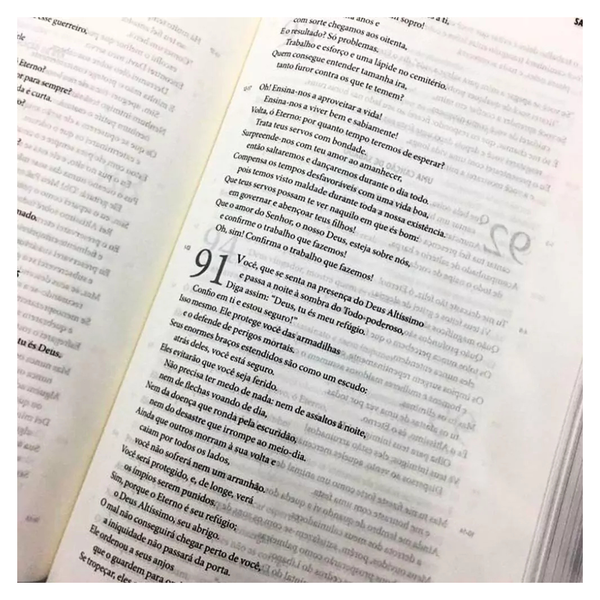 esse guerreiro,
Eterno?
para sempre?
é curta.
mado.
tu és Deus.
SA
anos e
com sorte chegamos aos oitenta,
E o resultado? Só problemas.
Trabalho e esforço e uma lápide no cemitério.
Quem consegue entender tamanha ira,
tanto furor contra os que te temem?
Oh! Ensina-nos a aproveitar a vida!
Ensina-nos a viver bem e sabiamente!
Volta, ó Eterno: por quanto tempo teremos de esperar?
Trata teus servos com bondade.
Surpreende-nos com teu amor ao amanhecer,
então saltaremos e dançaremos durante o dia todo.
Compensa os tempos desfavoráveis com uma vida boa,
pois temos visto maldade durante toda a nossa existência.
Que teus servos possam te ver naquilo em que és bom:
em governar e abençoar teus filhos!
Que o amor do Senhor, o nosso Deus, esteja sobre nós,
e confirme o trabalho que fazemos!
Oh, sim! Confirma o trabalho que fazemos!
91 Você, que se senta na presença do Deus Altíssimo
e passa a noite à sombra do Todo-poderoso,
Diga assim: "Deus, tu és meu refúgio.
Confio em ti e estou seguro!"
Isso mesmo. Ele protege você das armadilhas
e o defende de perigos mortais.
Seus enormes braços estendidos são como um escudo:
atrás deles, você está seguro.
Eles evitarão que você seja ferido.
Não precisa ter medo de nada: nem de assaltos à noite,
nem de flechas voando de dia,
Nem da doença que ronda pela escuridão,
nem do desastre que irrompe ao meio-dia.
Ainda que outros morram à sua volta e
caiam por todos os lados,
você não sofrerá nem um arranhão.
Você será protegido, e, de longe, verá
os ímpios serem punidos.
Sim, porque o Eterno é seu refúgio;
o Deus Altíssimo, seu abrigo.
O mal não conseguirá chegar perto de você,
a iniquidade não passará da porta.
Ele ordenou a seus anjos
que o guardem para on
Se tropeçar, eles